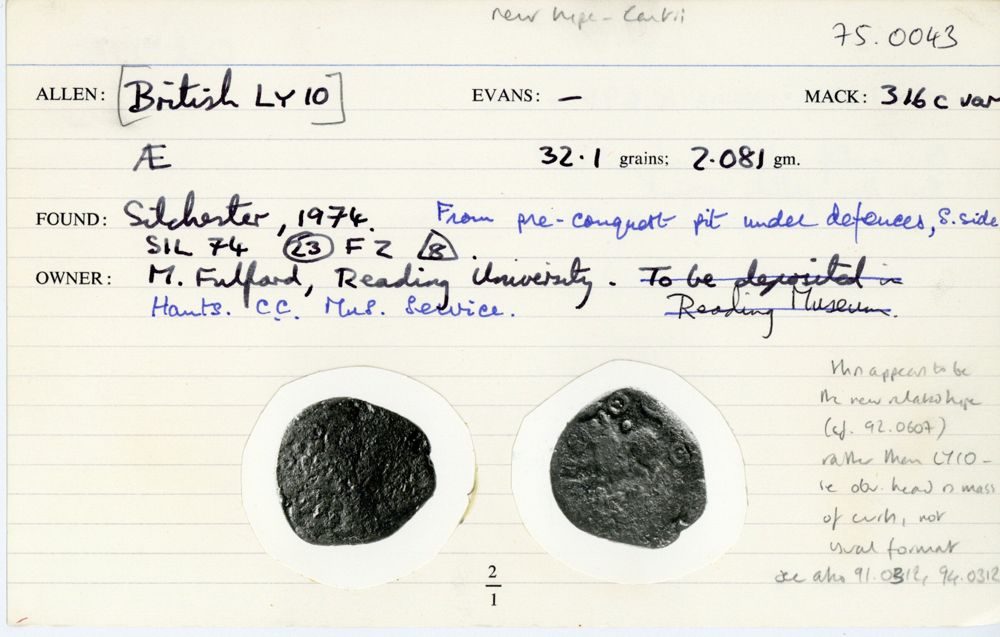 new type - Cantii
75.0043
ALLEN: [British LY 10] EVANS: — MACK: 316 c var
Æ 32.1 grains; 2.081 gm.
FOUND: Silchester, 1974. From pre-conquest pit under defences, S. side
SIL 74 23 F 2 8.
OWNER: M. Fulford, Reading University. To be deposited in
Hants. C.C. Mus. Service. Reading Museum.
this appears to be
the new related type
(cf. 92.0607)
rather than LY10 -
ie obv. head is mass
of curls, not
usual format
see also 91.0312, 94.0312
2
1